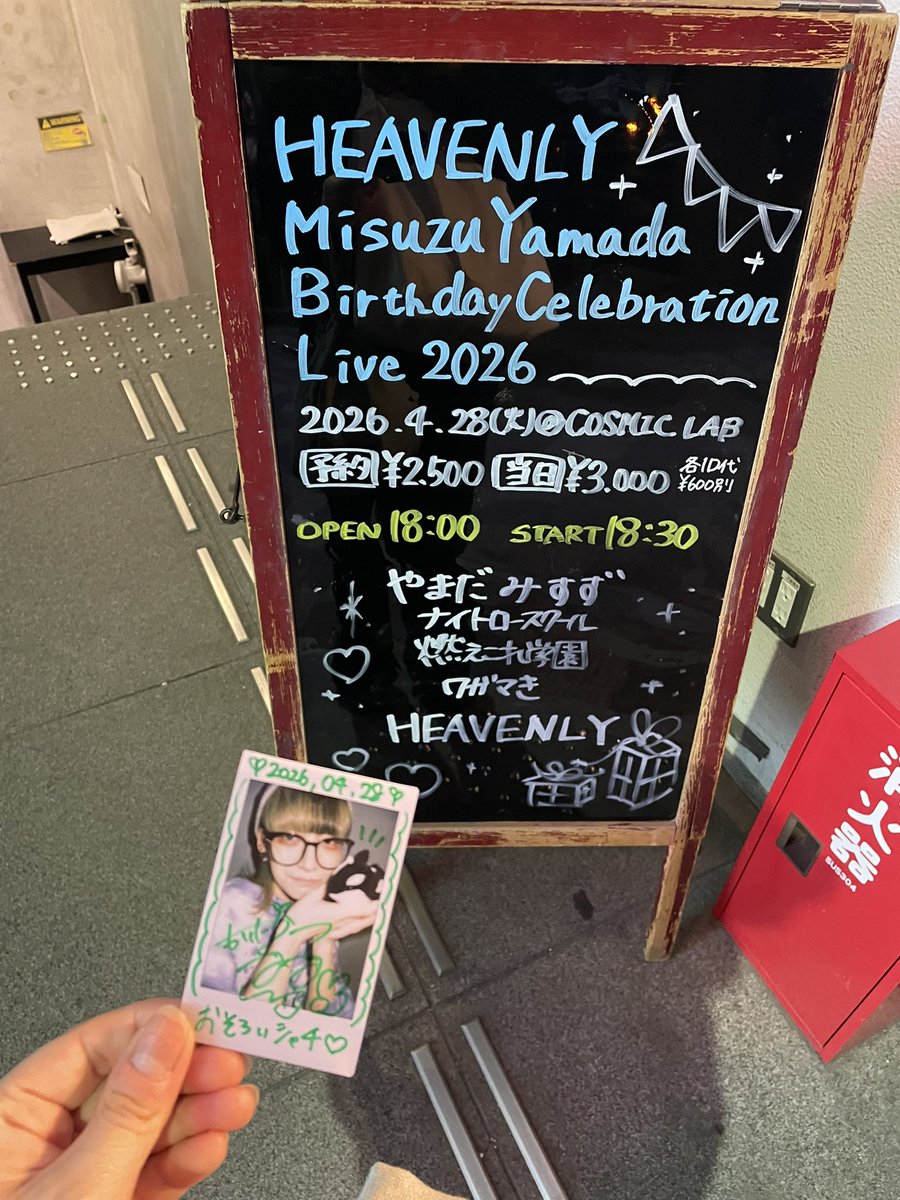 WARNING
HEAVENLY
Misuzu Yamada
Birthday Celebration
Live 2026
2026.4.28(火)@COSMIC LAB
予約 ¥2.500 当日 ¥3.000 各1D代
¥600別り
OPEN 18:00 START 18:30
やまだ みすず
ナイトロースクール
燃えこれ学園
ワガマき
HEAVENLY
消火器
SUS304
♡2026.04.28♡
おそろいシャチ♡